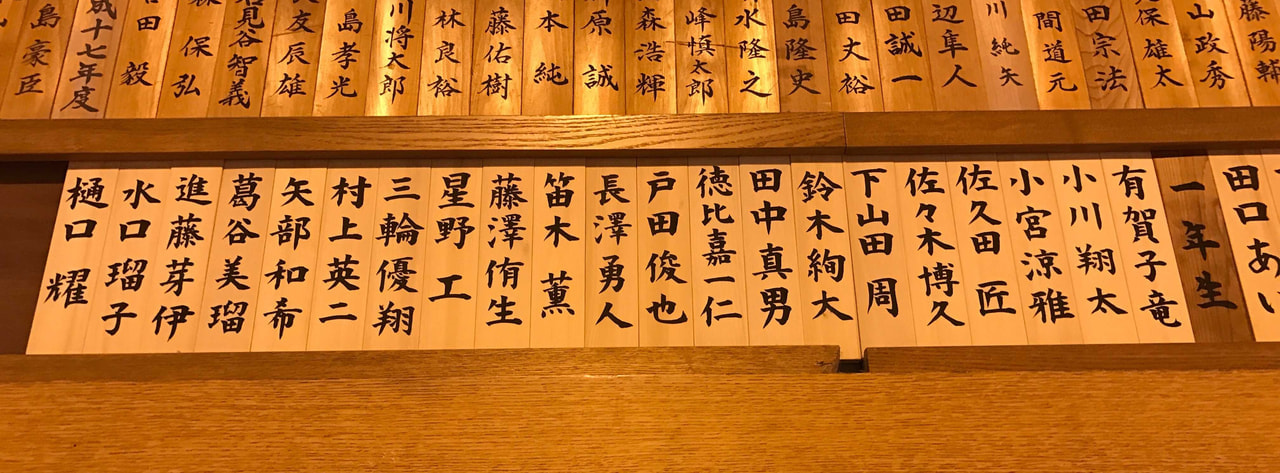 藤陽輔
山政秀
保雄太
田宗法
間道元
川純矢
辺隼人
田誠一
田丈裕
島隆史
水隆之
峰慎太郎
森浩輝
原誠
本純
藤佑樹
林良裕
川将太郎
島孝光
友辰雄
見谷智義
保弘
田毅
成十七年度
島豪臣
田口あい
一年生
有賀子竜
小川翔太
小宮涼雅
佐久田匠
佐々木博久
下山田周
鈴木絢大
田中真男
徳比嘉一仁
戸田俊也
長澤勇人
笛木薫
藤澤侑生
星野工
三輪優翔
村上英二
矢部和希
葛谷美瑠
進藤芽伊
水口瑠子
樋口耀